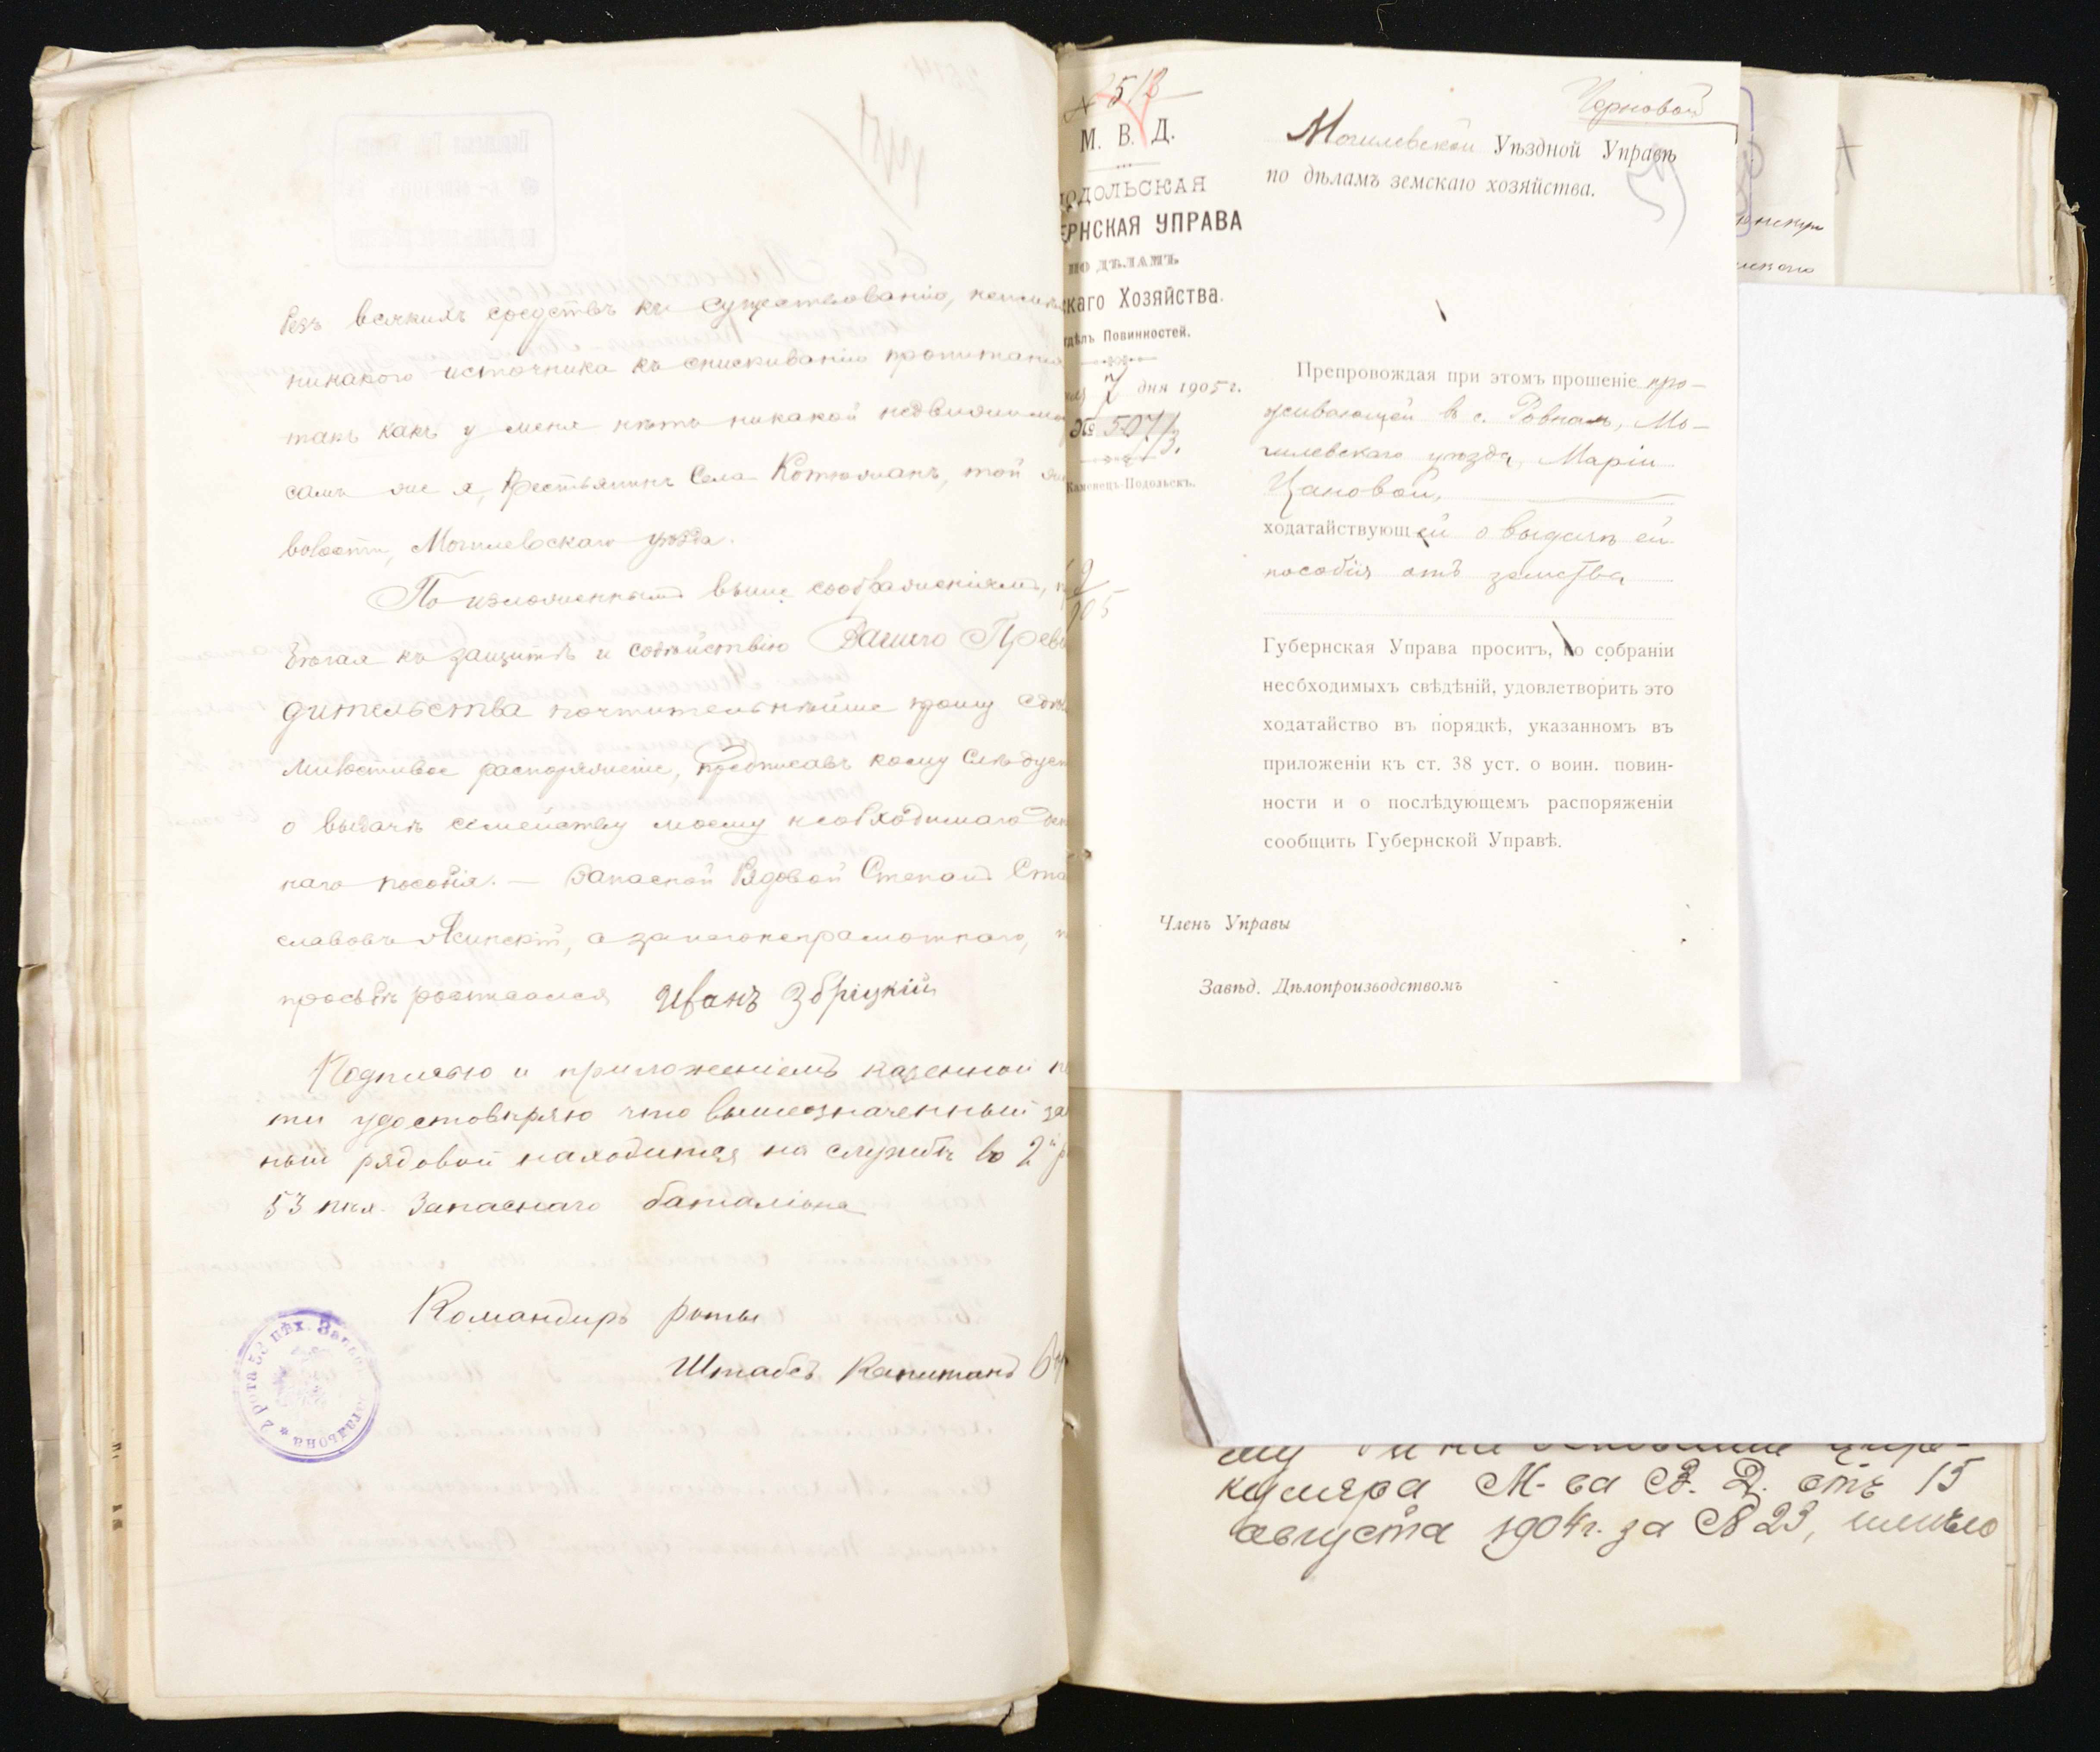 безъ всякихъ средствъ къ существованію,
никакого источника къ снискиванію пропитанія
такъ какъ у меня нѣтъ никакой
самъ же я, Крестьянинъ Села Котюжанъ, той же
волости, Могилевскаго уѣзда.
По изложеннымъ выше соображеніямъ,
бѣгая къ защитѣ и содѣйствію Вашего Превы
дительства почтительнѣйше прошу
милостивое распоряженіе, предписавъ кому слѣдуетъ
о выдачѣ семейству моему необходимаго
наго пособія. — Запасной Рядовой Степанъ Ста
славовъ Ясинскій, а за него неграмотнаго,
просьбѣ росписался Иванъ Збріцкій
Подписью и приложеніемъ казенной пе
ти удостовѣряю что вышеозначенный за
ный рядовой находится на службѣ во 2й р
53 пѣх. Запаснаго баталіона
Командиръ роты
Штабсъ Капитанъ
2 рота 53 пѣх. Запас. баталіона
М. В. Д.
ПОДОЛЬСКАЯ
ЕРНСКАЯ УПРАВА
ПО ДѢЛАМЪ
скаго Хозяйства.
тдѣлъ Повинностей.
7 дня 1905 г.
№ 5071/3.
Каменецъ-Подольскъ.
Черновой
Могилевской Уѣздной Управѣ
по дѣламъ земскаго хозяйства.
Препровождая при этомъ прошеніе про-
живающей въ с. Ровномъ, Мо-
гилевскаго уѣзда, Маріи
Цановой,
ходатайствующей о выдачѣ ей
пособія отъ земства
Губернская Управа проситъ, по собраніи
необходимыхъ свѣдѣній, удовлетворить это
ходатайство въ порядкѣ, указанномъ въ
приложеніи къ ст. 38 уст. о воин. повин-
ности и о послѣдующемъ распоряженіи
сообщить Губернской Управѣ.
Членъ Управы
Завѣд. Дѣлопроизводствомъ
куляра М-ва В. Д. отъ 15
августа 1904 г. за № 23, имѣю